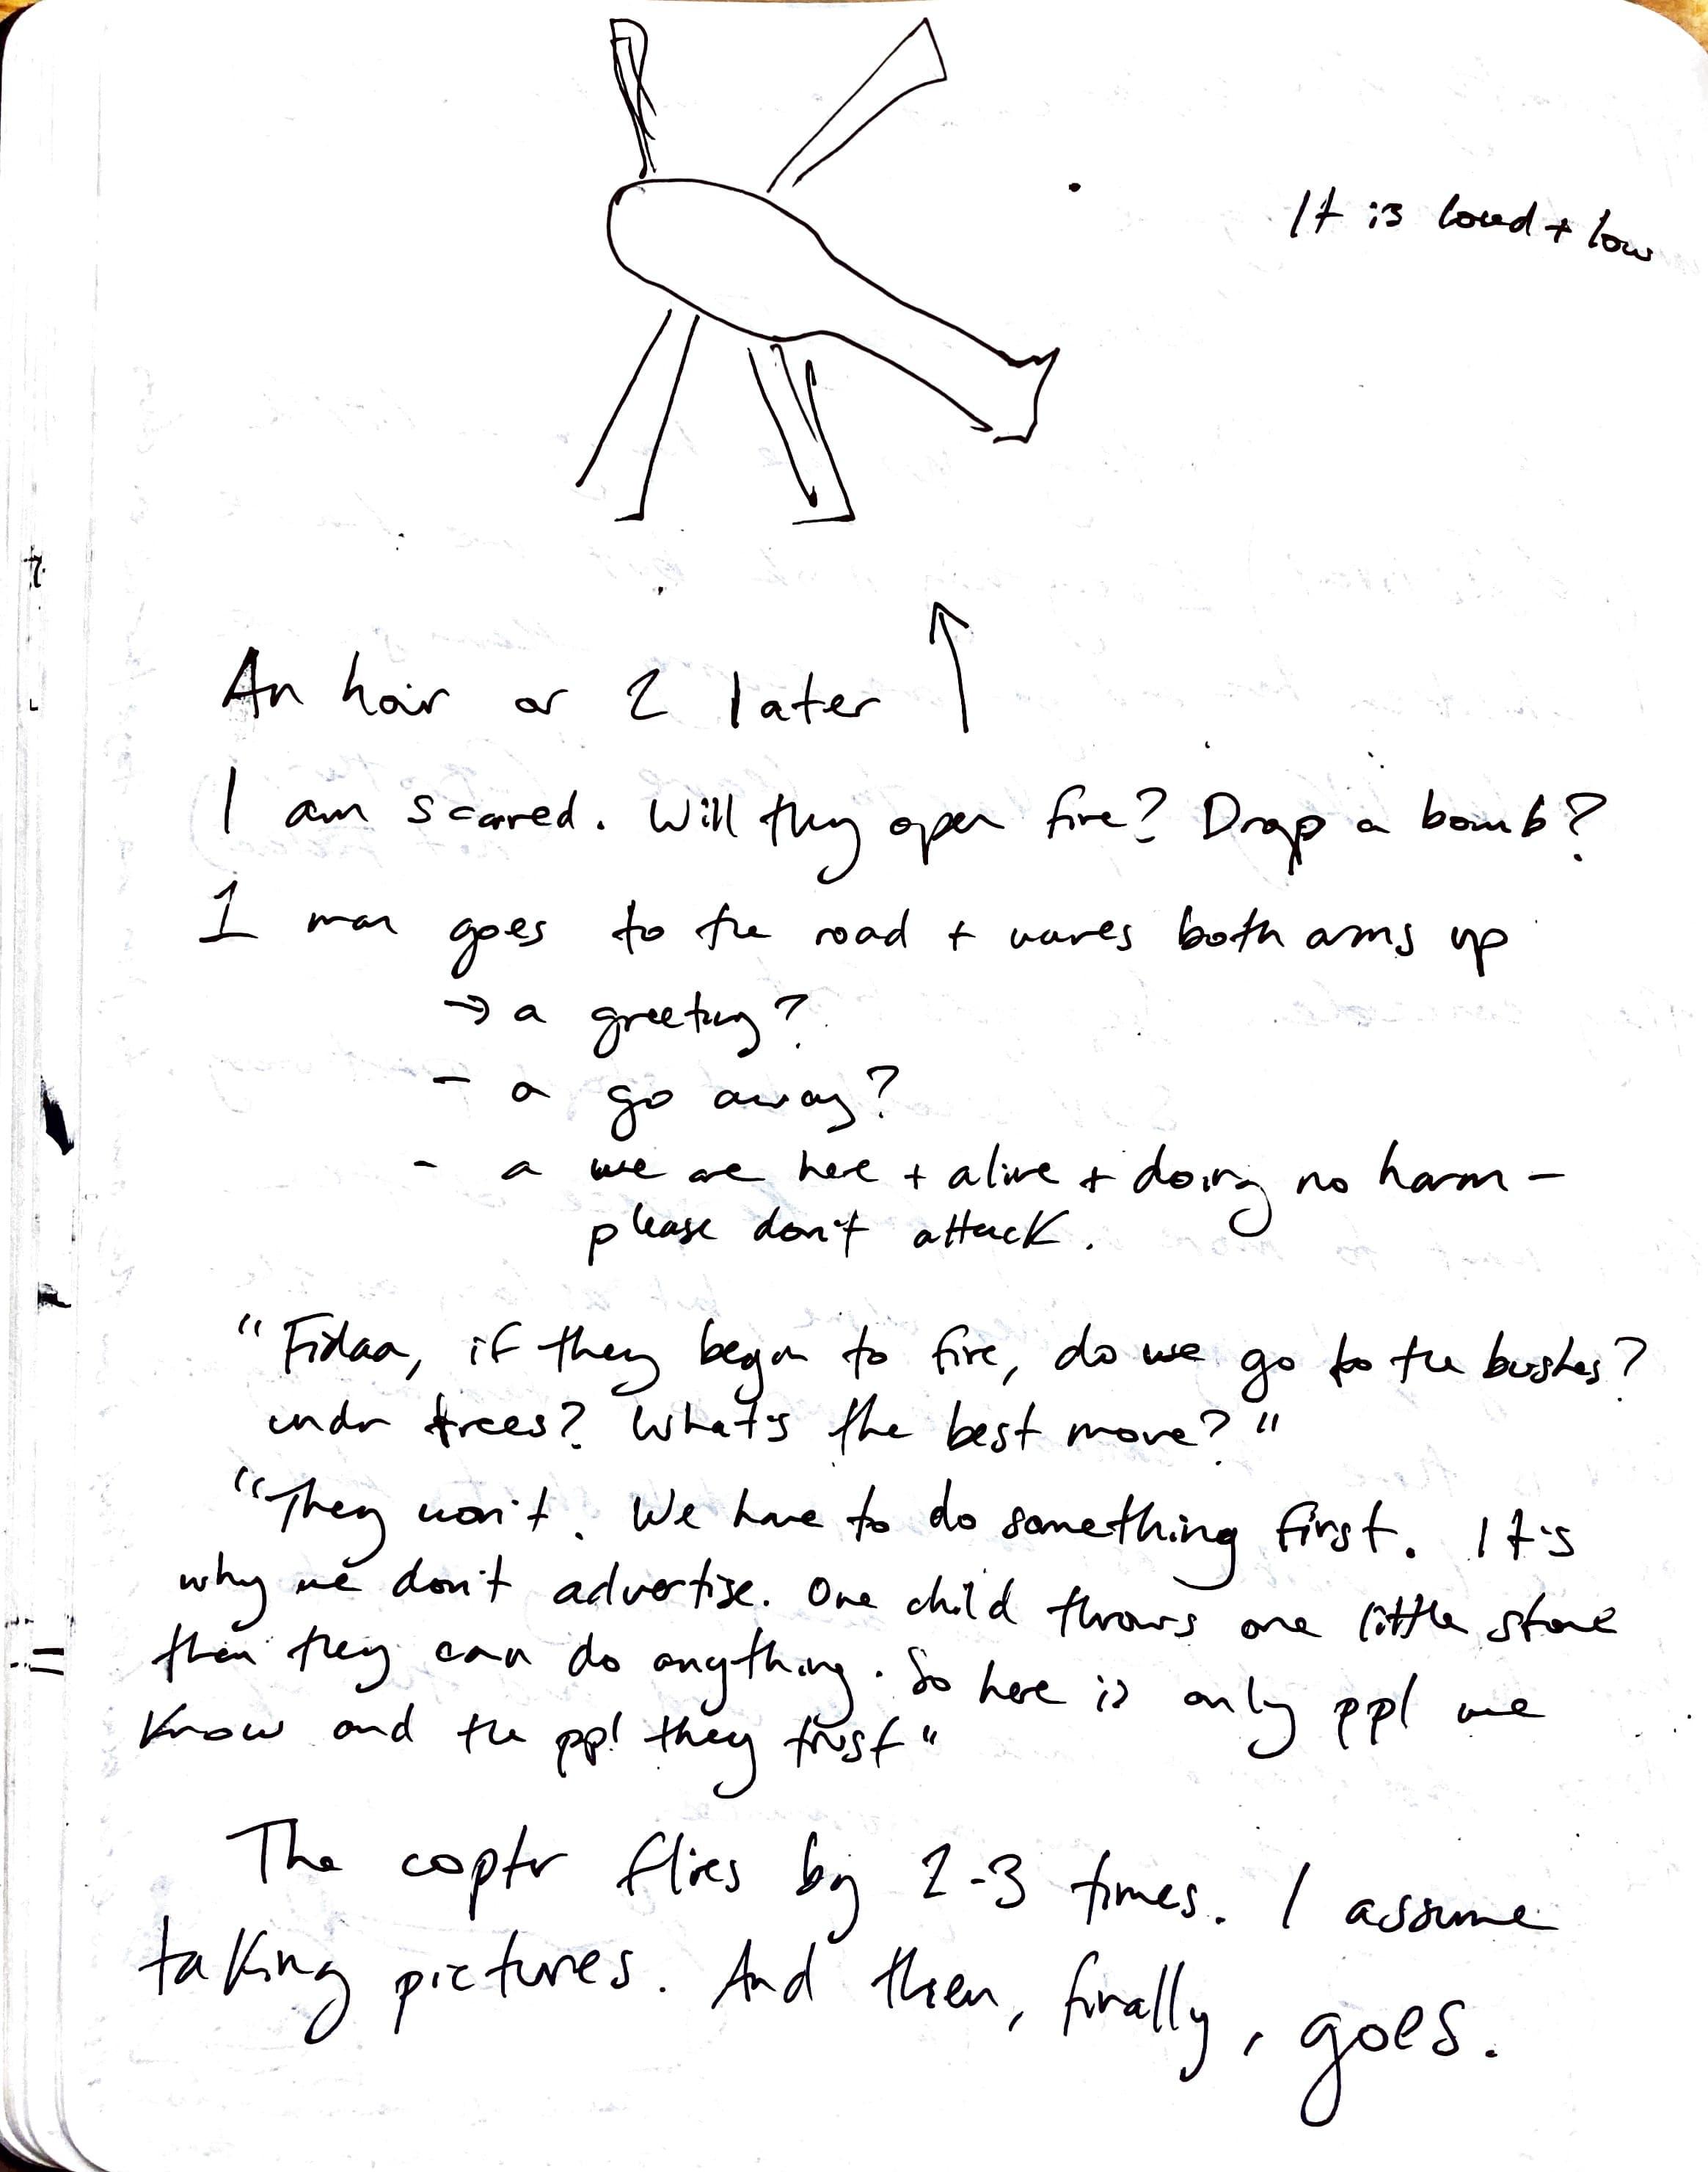 It is loud + low
An hour or 2 later ↑
I am scared. Will they open fire? Drop a bomb?
1 man goes to the road + waves both arms up
→ a greeting?
- a go away?
- a we are here + alive + doing no harm -
please don't attack.
"Fidaa, if they began to fire, do we go to the bushes?
undr trees? What's the best move?"
"They won't. We have to do something first. It's
why we don't advertise. One child throws one little stone
then they can do anything. So here is only ppl we
know and the ppl they trust"
The coptr flies by 2-3 times. I assume
taking pictures. And then, finally, goes.